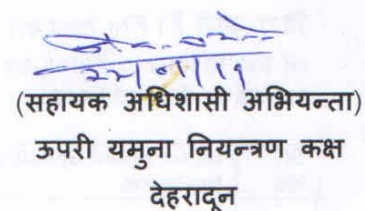 (सहायक अधिशासी अभियन्ता)
ऊपरी यमुना नियन्त्रण कक्ष
देहरादून